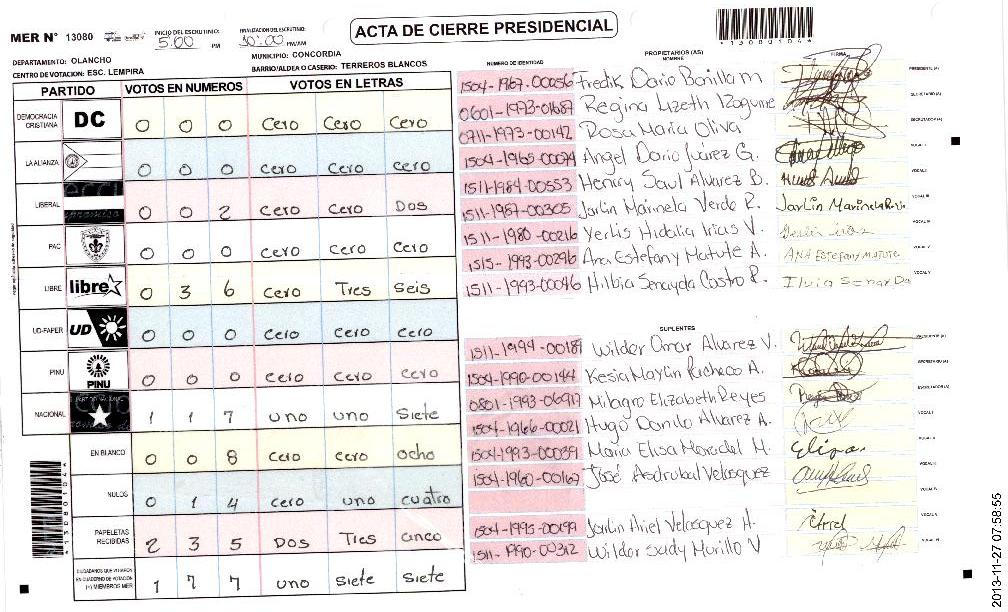 MER N° 13080
INICIO DEL ESCRUTINIO: 5:00 PM
FINALIZACION DEL ESCRUTINIO: 10:00 PM/AM
ACTA DE CIERRE PRESIDENCIAL
*13080104*
DEPARTAMENTO: OLANCHO
MUNICIPIO: CONCORDIA
CENTRO DE VOTACION: ESC. LEMPIRA
BARRIO/ALDEA O CASERIO: TERREROS BLANCOS
PARTIDO VOTOS EN NUMEROS VOTOS EN LETRAS
DEMOCRACIA CRISTIANA DC 0 0 0 cero cero cero
LA ALIANZA 0 0 0 cero cero cero
LIBERAL 0 0 2 cero cero Dos
PAC 0 0 0 cero cero cero
LIBRE libre 0 3 6 cero Tres seis
UD-FAPER UD 0 0 0 cero cero cero
PINU PINU 0 0 0 cero cero cero
NACIONAL 1 1 7 uno uno siete
EN BLANCO 0 0 8 cero cero ocho
NULOS 0 1 4 cero uno cuatro
PAPELETAS RECIBIDAS 2 3 5 Dos Tres cinco
CIUDADANOS QUE VOTARON EN CUADERNO DE VOTACION (+) MIEMBROS MER 1 7 7 uno siete siete
*13080104*
NUMERO DE IDENTIDAD PROPIETARIOS (AS) NOMBRE FIRMA
1504-1967-00056 Fredik Dario Bonilla m PRESIDENTE (A)
0601-1973-01687 Regina Lizeth Izaguirre SECRETARIO (A)
0711-1973-00142 Rosa Maria Oliva ESCRUTADOR (A)
1504-1965-00074 Angel Dario Juárez G. VOCAL I
1511-1984-00553 Henrry Saul Alvarez B. VOCAL II
1511-1987-00305 Jarlin Marinela Verde R. Jarlin Marinela VOCAL III
1511-1980-00216 Yerlis Hidalia Irias V. VOCAL IV
1515-1993-00296 Ana Estefany Matute A. ANA Estefany matute VOCAL V
1511-1993-00046 Hilbia Senayda Castro R.
SUPLENTES
1511-1994-00187 Wilder Omar Alvarez V. PRESIDENTE (A)
1504-1990-00144 Kesia Maylin Pacheco A. SECRETARIO (A)
0801-1993-06917 Milagro Elizabeth Reyes ESCRUTADOR (A)
1504-1966-00021 Hugo Danilo Alvarez A. VOCAL I
1504-1993-00039 Maria Elisa Meradel M. Elisa
1504-1960-00167 José Asdrubal Velasquez
1504-1995-00199 Jarlin Ariel Velasquez H.
1511-1990-00312 Wilder Sady Murillo V
2013-11-27 07:58:55